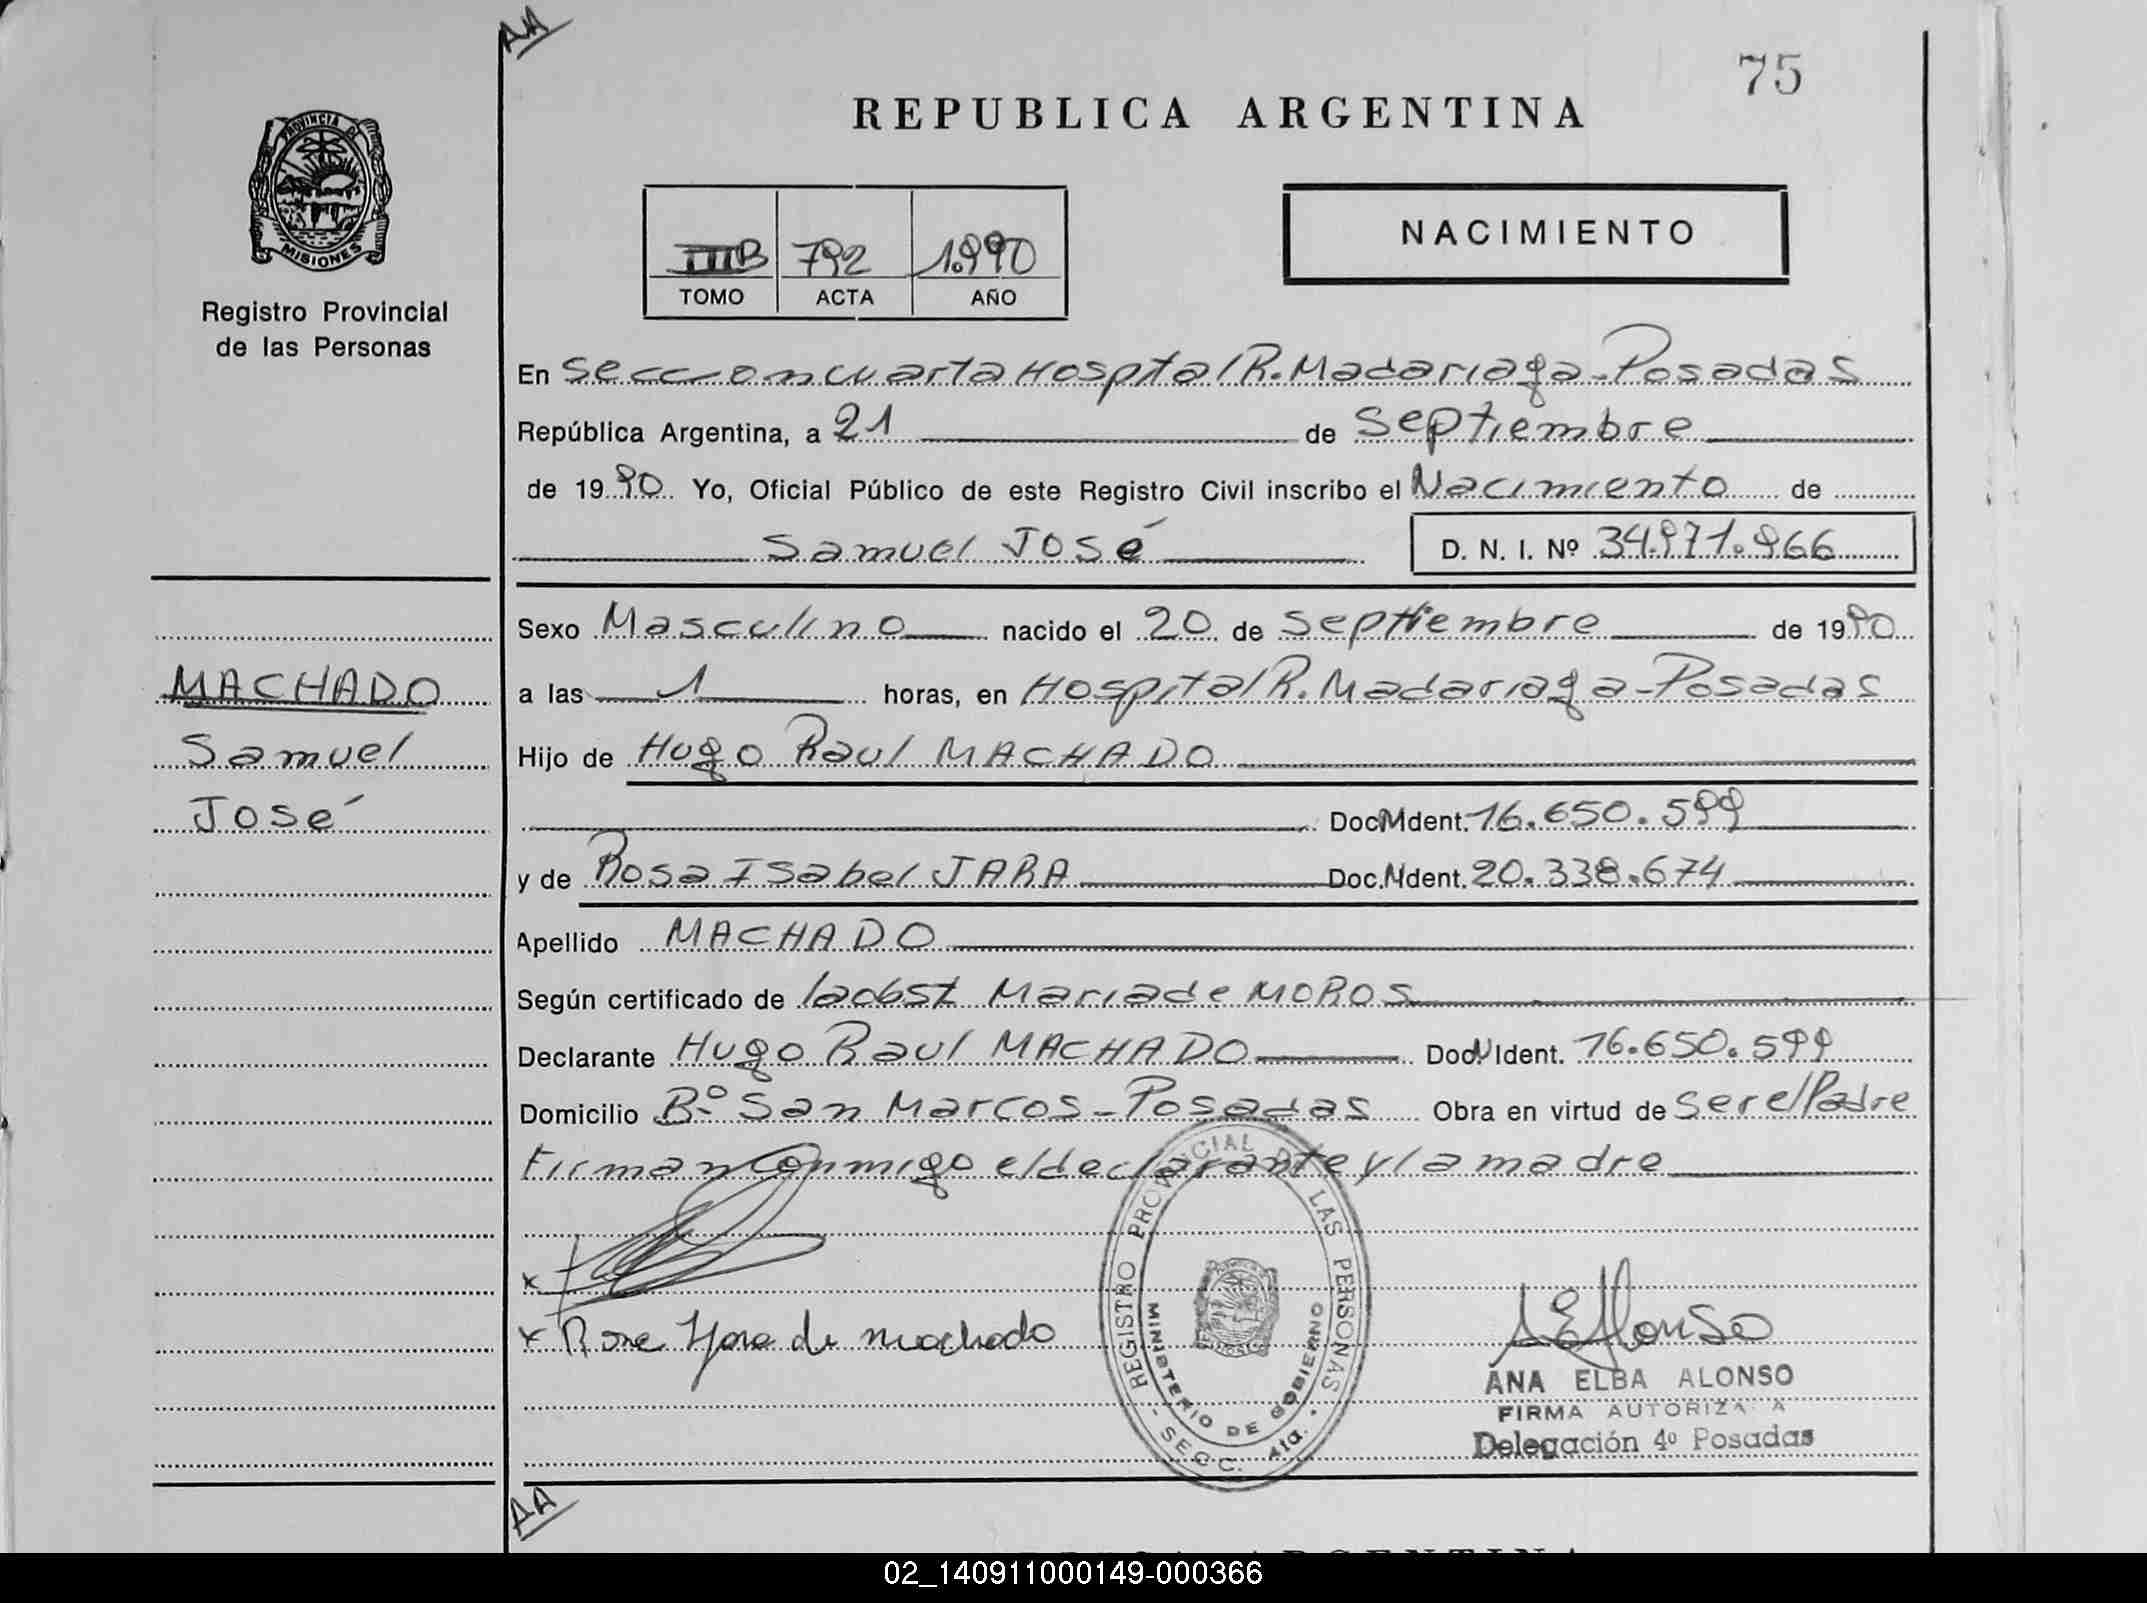 AA
75
REPUBLICA ARGENTINA
PROVINCIA DE
MISIONES
Registro Provincial
de las Personas
NACIMIENTO
IIIB 792 1.990
TOMO ACTA AÑO
En Seccion cuarta Hospital R. Madariaga - Posadas
República Argentina, a 21 de Septiembre
de 1990 Yo, Oficial Público de este Registro Civil inscribo el Nacimiento de
Samuel José D. N. I. Nº 34.971.966
Sexo Masculino nacido el 20 de Septiembre de 1990
MACHADO
a las 1 horas, en Hospital R. Madariaga - Posadas
Samuel
Hijo de Hugo Raul MACHADO
José
Doc. Ident. 16.650.599
y de Rosa Isabel JARA Doc. Ident. 20.338.674
Apellido MACHADO
Según certificado de la obst Maria de MOROS
Declarante Hugo Raul MACHADO Doc. Ident. 16.650.599
Domicilio Bº San Marcos - Posadas Obra en virtud de Ser el Padre
Firman conmigo el declarante y la madre
x
x Rosa Jara de machado
REGISTRO PROVINCIAL DE LAS PERSONAS
MINISTERIO DE GOBIERNO
- SECC. 4ta. -
AEAlonso
ANA ELBA ALONSO
FIRMA AUTORIZA A
Delegación 4º Posadas
AA
02_140911000149-000366